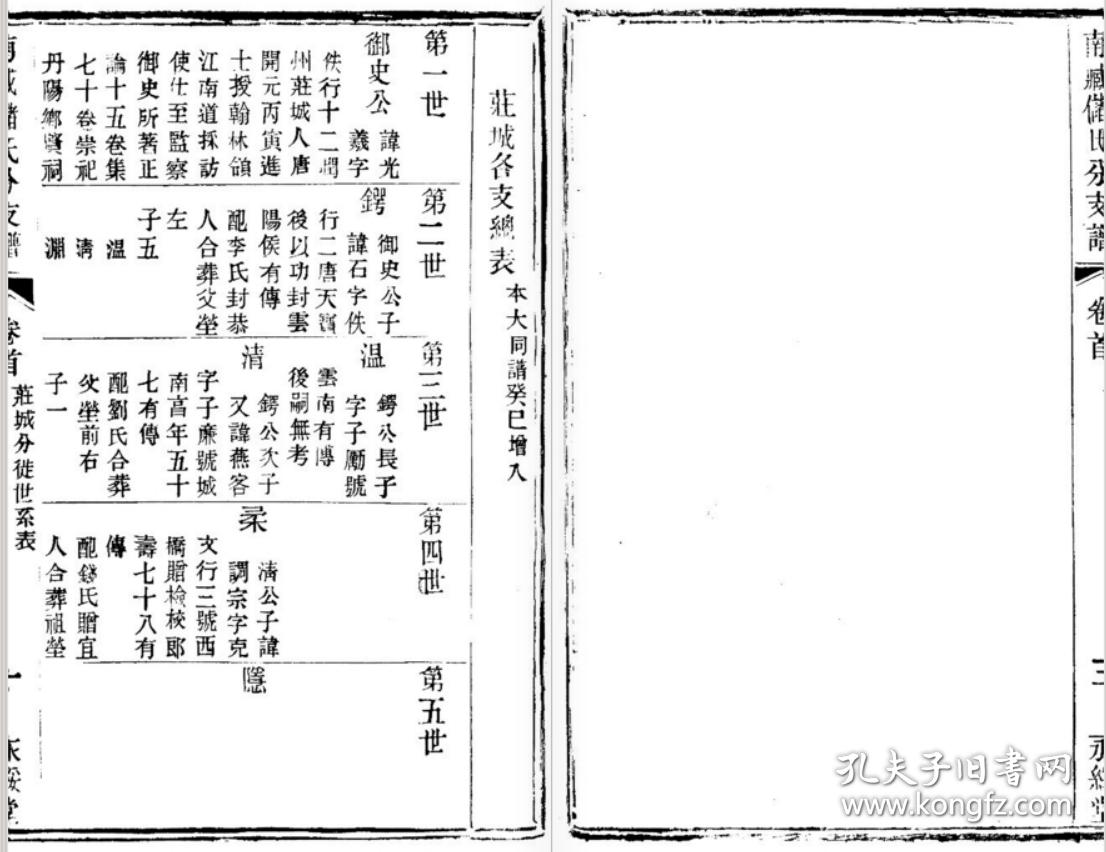 南臧儲氏分支譜
卷首
三
永綏堂
莊城各支總表
本大同譜癸巳增入
第一世
御史公
諱光
羲字
佚行十二潤
州莊城人唐
開元丙寅進
士授翰林領
江南道採訪
使仕至監察
御史所著正
論十五卷集
七十卷崇祀
丹陽鄉賢祠
第二世
鍔
御史公子
諱石字佚
行二唐天寶
後以功封雲
陽侯有傳
配李氏封恭
人合葬父塋
左
子五
溫
清
淵
第三世
温
鍔公長子
字子勵號
雲南有傳
後嗣無考
清
鍔公次子
又諱燕客
字子廉號城
南高年五十
七有傳
配劉氏合葬
父塋前右
子一
第四世
柔
清公子諱
調宗字克
文行三號西
橋贈檢校郎
壽七十八有
傳
配錢氏贈宜
人合葬祖塋
第五世
隱
南臧儲氏分支譜
卷首
莊城分徙世系表
一
永綏堂
孔夫子旧书网
www.kongfz.com